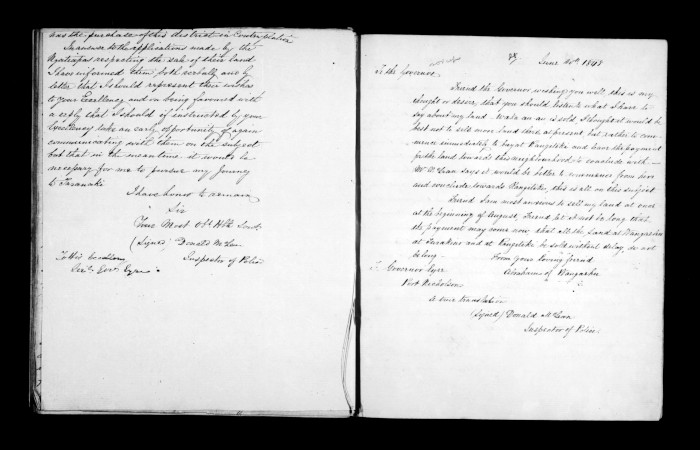 has the purchase of this district in Contemplation
In answer to the applications made by the
respecting the sale of their land
I have informed them both verbally and by
letter that I should represent their wishes
to your Excellency and on being favoured with
a reply that I should if instructed by your
Excellency take an early opportunity of again
communicating with them on the subject
but that in the meantime it would be
necessary for me to pursue my Journey
to Taranaki
I have honor to remain
Sir
Your Most Obt Hble Servt
(Signed) Donald McLean
Inspector of Police
To His Excellency
Lieut. Govr. Eyre
June 1848
To the Governor
Friend the Governor, wishing you well, this is my
thought or desire, that you should listen to what I have to
say about my land. is sold, I thought it would be
best not to sell more land there at present, but rather to com-
mence immediately to buy at Rangitikei and have the payment
for the land towards this neighbourhood to conclude with —
Mr McLean says it would be better to commence from here
and conclude towards Rangitikei, this is all on this subject
Friend I am most anxious to sell my land at once
at the beginning of August, Friend let it not be long that
the payment may come now that all the land at
at Tarakina and at Rangitikei be sold without delay, do not
be long — From your loving friend
Abraham of
To Governor Eyre
Port Nicholson
A true translation
(Signed) Donald McLean
Inspector of Police